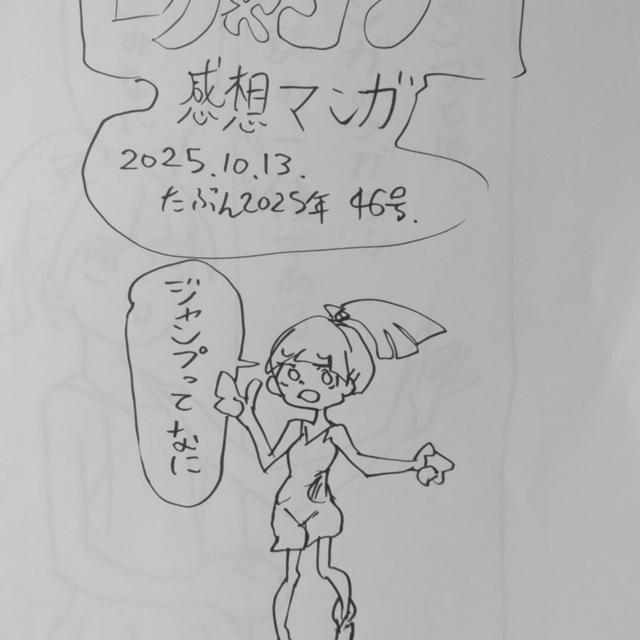 感想マンガ
2025.10.13.
たぶん2025年 46号.
ジャンプってなに